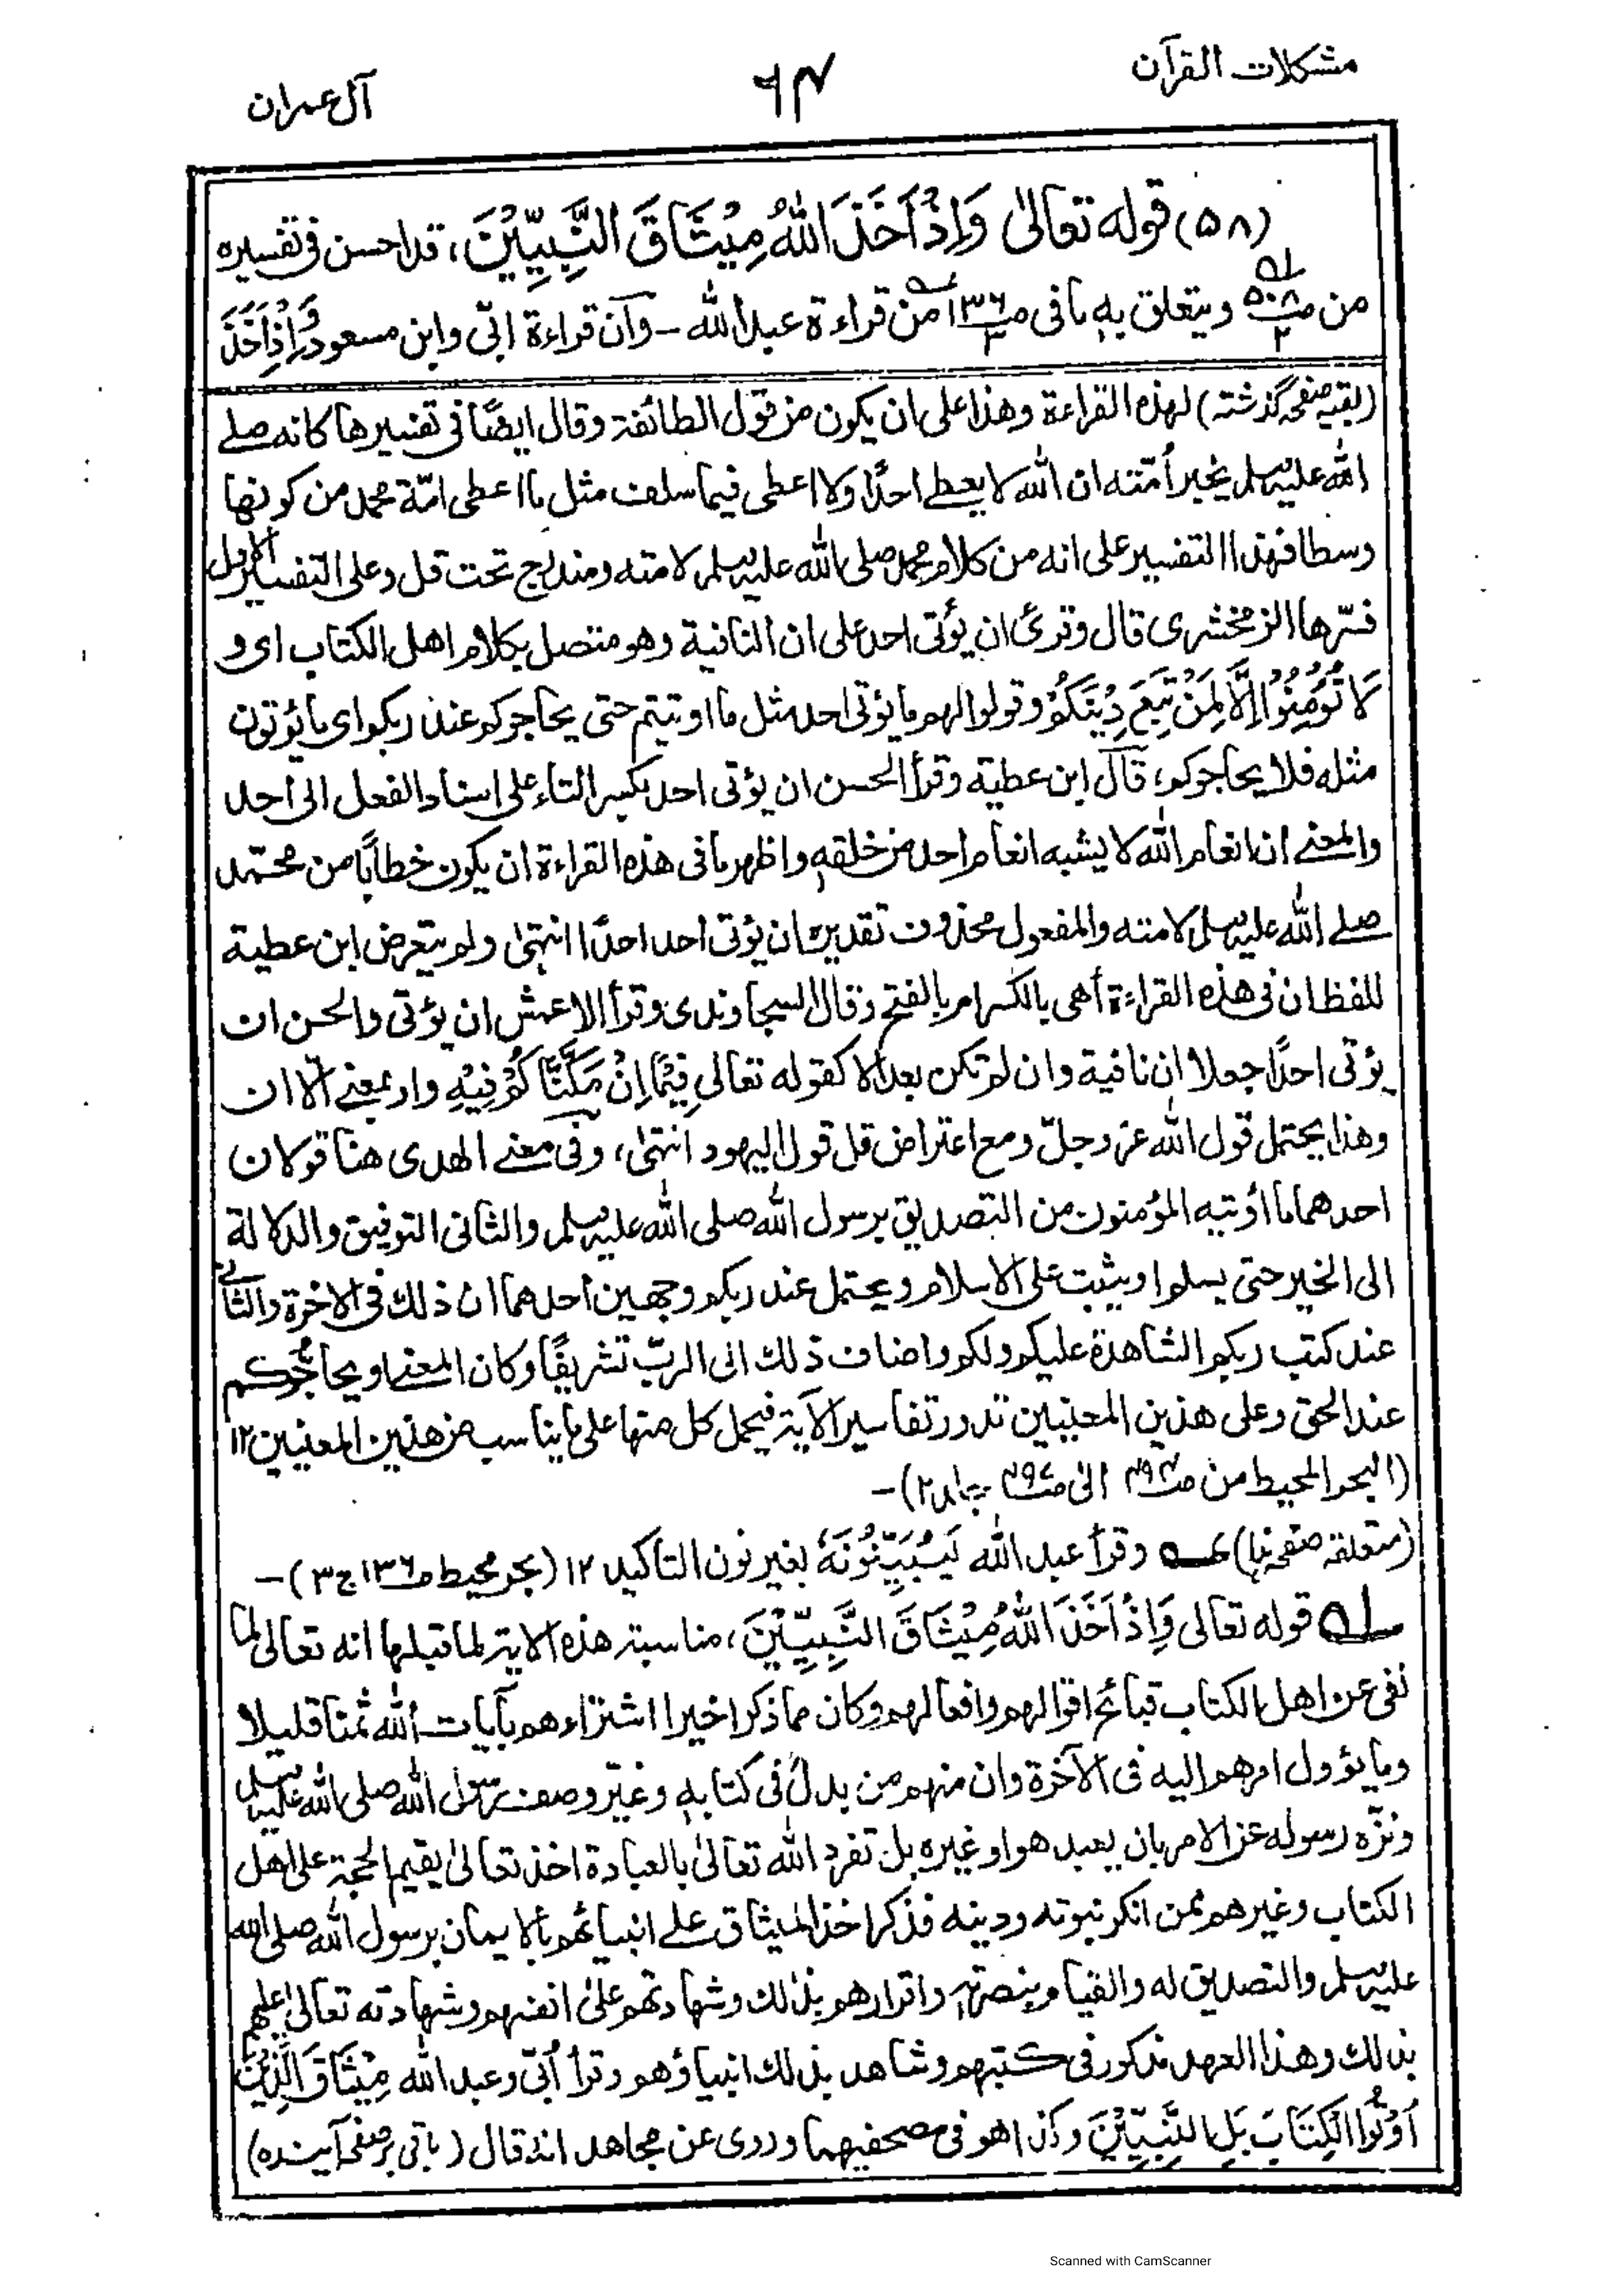 مشكلات القرآن
٦٤
آل عمران
(٥٨) قوله تعالىٰ وَاِذْ اَخَذَ اللّٰهُ مِيْثَاقَ النَّبِيِّيْنَ، قد احسن فى تفسيره
من ص٥٠٨/٢ ويتعلق به ما فى ص١٣٦/٣ من قراءة عبد الله - وآن قراءة ابىّ وابن مسعود وَاِذْ اَخَذَ
(بقيه صفحه گذشته) لهذه القراءة وهذا على ان يكون من قول الطائفة وقال ايضًا فى تفسيرها كانه صلے
الله عليه وسلم يخبر أمّته ان الله لا يعطے احدًا ولا اعطى فيما سلف مثل ما اعطى امّة محمد من كونها
وسطا فهذا التفسير على انه من كلام محمد صلى الله عليه وسلم لامته ومندرج تحت قل وعلى التفسير الاول
فسّرها الزمخشرى قال وقرئ ان يؤتى احد على ان النافية وهو متصل بكلام اهل الكتاب اى و
لَا تُؤْمِنُوْا اِلَّا لِمَنْ تَبِعَ دِيْنَكُمْ وقولوا لهم ما يؤتى احد مثل ما اوتيتم حتى يحاجوكم عند ربكم اى ما يؤتون
مثله فلا يحاجوكم، قال ابن عطية وقرأ الحسن ان يؤتى احد بكسر التاء على اسناد الفعل الى احد
والمعنے ان انعام الله لا يشبه انعام احد من خلقه واظهر ما فى هذه القراءة ان يكون خطابًا من محمّد
صلے الله عليه وسلم لامته والمفعول محذوف تقديره ان يؤتى احد احدًا انتهىٰ ولم يتعرض ابن عطية
للفظ ان فى هذه القراءة أهى بالكسر ام بالفتح وقال السجاوندى وقرأ الاعمش ان يؤتى والحسن ان
يؤتى احدًا جعلا ان نافية وان لم تكن بعد الا كقوله تعالى فِيْمَا اِنْ مَكَّنَّا كُمْ فِيْهِ واو بمعنے الّا ان
وهذا يحتمل قول الله عز وجلّ ومع اعتراض قل قول اليهود انتهىٰ، وفى معنے الهدى هنا قولان
احدهما ما اُوتيه المؤمنون من التصديق برسول الله صلى الله عليه وسلم والثانى التوفيق والدلالة
الى الخير حتى يسلموا ويثبت على الاسلام ويحتمل عند ربكم وجهين احدهما ان ذلك فى الاخرة والثانے
عند كتب ربكم الشاهدة عليكم ولكم واضاف ذلك الى الربّ تشريفًا وكان المعنے او يحاجّوكم
عند الحق وعلى هذين المعنيين تدور تفاسير الآية فيحمل كل منها على ما يناسب من هذين المعنيين ١٢
(البحر المحيط من ص٤٩٤ الىٰ ص٤٩٧ جلد ٢)-
(متعلقه صفحه هذا) وقرأ عبد الله لَيُبَيِّنُوْنَهٗ بغير نون التاكيد ١٢ (بحر محيط ص١٣٦ ج٣)-
قوله تعالى وَاِذْ اَخَذَ اللّٰهُ مِيْثَاقَ النَّبِيِّيْنَ، مناسبة هذه الاية لما قبلها انه تعالى لما
نفى عن اهل الكتاب قبائح اقوالهم وافعالهم وكان مما ذكر اخيرا اشتراءهم بآيات الله ثمنا قليلا
وما يؤول امرهم اليه فى الآخرة وان منهم من بدل فى كتابه وغيّر وصف رسول الله صلى الله عليه وسلم
ونزّه رسوله عن الامر بان يعبد هو او غيره بل تفرد الله تعالىٰ بالعبادة اخذ تعالىٰ يقيم الحجة على اهل
الكتاب وغيرهم ممن انكر نبوته ودينه فذكر اخذ الميثاق علے انبيائهم بالايمان برسول الله صلى الله
عليه وسلم والتصديق له والقيام بنصرته واقرارهم بذلك وشهادتهم علىٰ انفسهم وشهادته تعالىٰ عليهم
بذلك وهذا العهد مذكور فى كتبهم وشاهد بذلك انبياؤهم وقرأ اُبىّ وعبد الله مِيْثَاقَ الَّذِيْنَ
اُوْتُوا الْكِتَابَ بَلِ النَّبِيِّيْنَ وكذا هو فى مصحفيهما وروى عن مجاهد انه قال (باقى بر صفحه آينده)
Scanned with CamScanner